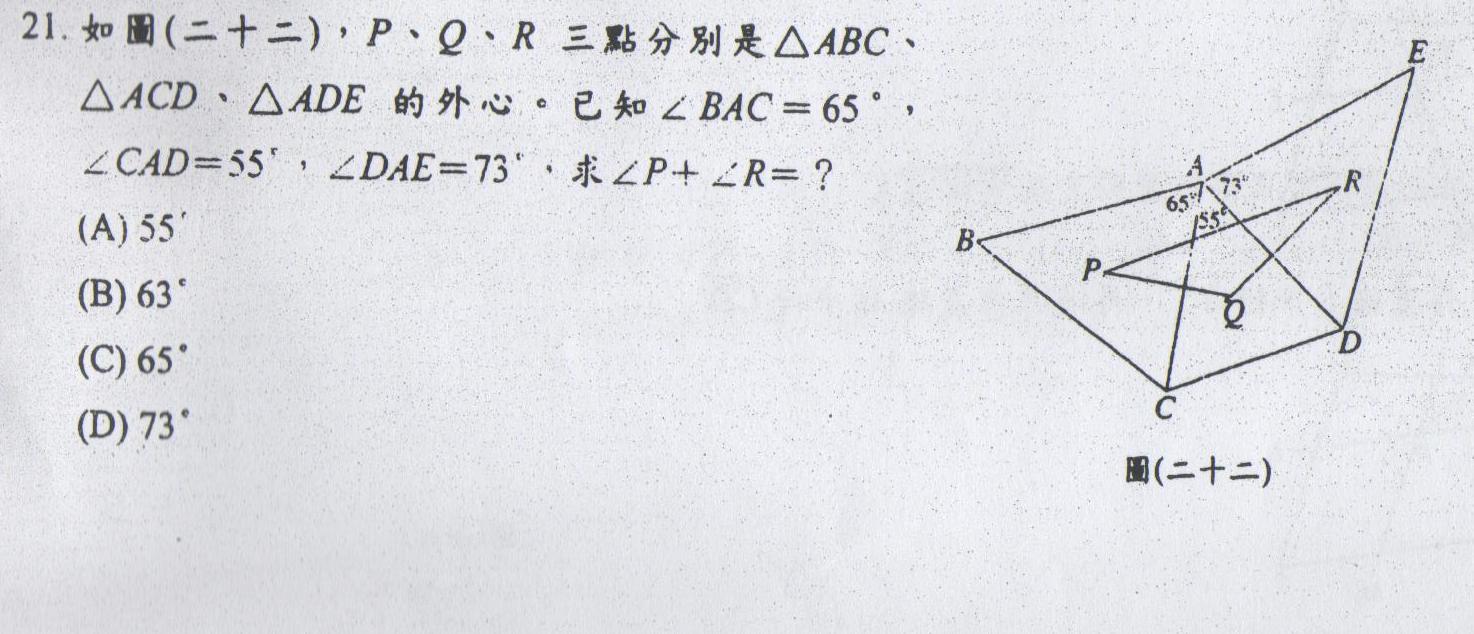 21. 如圖(二十二)，P、Q、R 三點分別是△ABC、
△ACD、△ADE 的外心。已知∠BAC＝65°，
∠CAD＝55°，∠DAE＝73°，求∠P＋∠R＝？
(A) 55°
(B) 63°
(C) 65°
(D) 73°
E
A
73°
R
65°
55°
B
P
Q
D
C
圖(二十二)